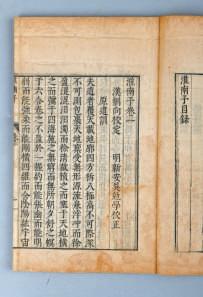 淮南子目錄
淮南子卷一
漢劉向校定 明新安吳勉學校正
原道訓
夫道者覆天載地廓四方柝八極高不可際深
不可測包裹天地稟受無形源流泉浡沖而徐
盈混混汩汩濁而徐清故植之而塞于天地橫
之而彌于四海施之無窮而無所朝夕舒之幎
于六合卷之不盈於一握約而能張幽而能明
弱而能強柔而能剛橫四維而含陰陽紘宇宙